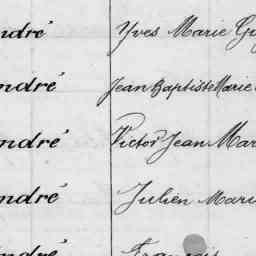 ndré Yves Marie
ndré Jean Baptiste Marie
ndré Victor Jean Mar
ndré Julien Mari
ndré François